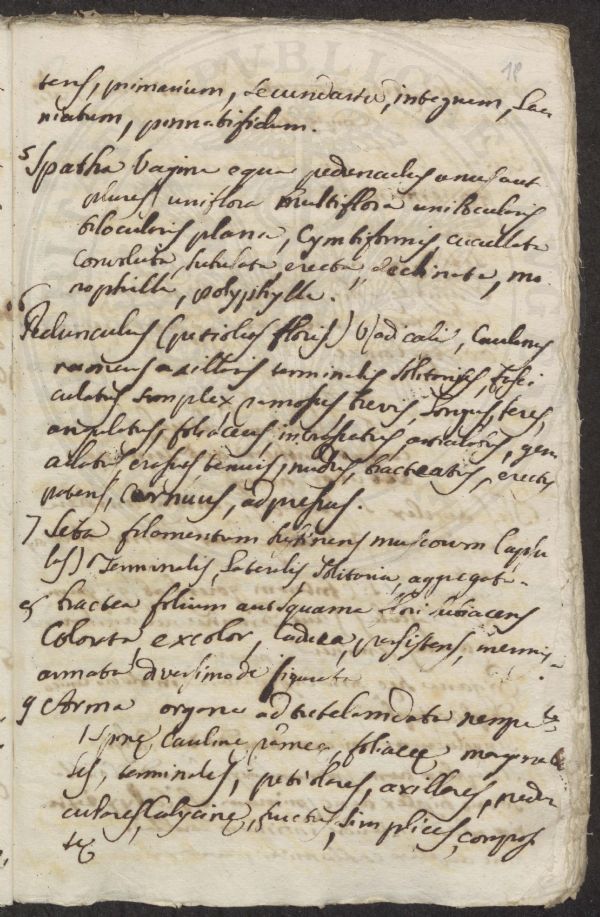 18
tens, primarium, secundariū, integrum, laci
niatum, pinnatifidum.
5 Spatha Vagina e qua pedunculus unus aut
plures / uniflora multiflora unilocularis
bilocularis plana, Cymbiformis cucullata
Convoluta, subulata erecta, declinata, mo
nophilla, polyphylla.
6 Pedunculus (petiolus floris) radicalis, Caulinus
rameus axillaris terminalis solitarius, fasci
culatus simplex ramosus brevis, longus, teres,
angulatus, foliaceus, incrassatus, articulatus, gem
alatus, crassus, tenuis, nudus, bracteatus, erectus
patens, cernuus, adpressus.
7 Seta filamentum sustinens muscorum Capsu
las) Terminalis, Lateralis, solitaria, aggregata.
8 bractea folium aut squama flori subiacens
Colorta, excolor, Caduca, persistens, inermis.
armata diversimode figurata
9 Arma organa ad tutelam data nempe
1 Spinę Cauline rameę, foliaceę marginale
les, terminales, petiolares, axillares, pedun
culares, Calycinę, fructus, simplices, compos
tę